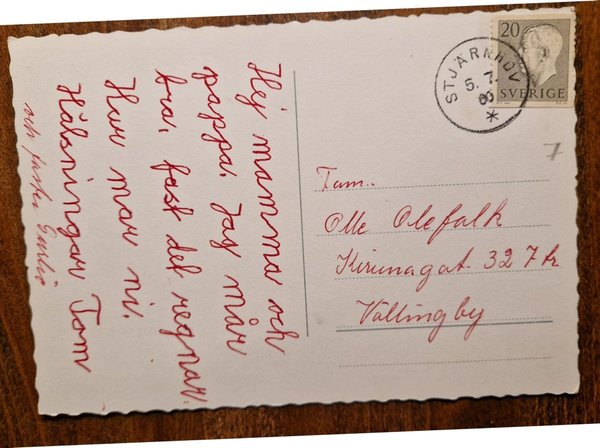 Hej mamma och
pappa. Jag mår
bra, fast det regnar.
Hur mar ni.
Hälsningar Tom
och faster
20
SVERIGE
STJÄRNHOV
5. 7.
Fam.
Olle Olefalk
Kirunagat. 32 7 tr
Vällingby
7